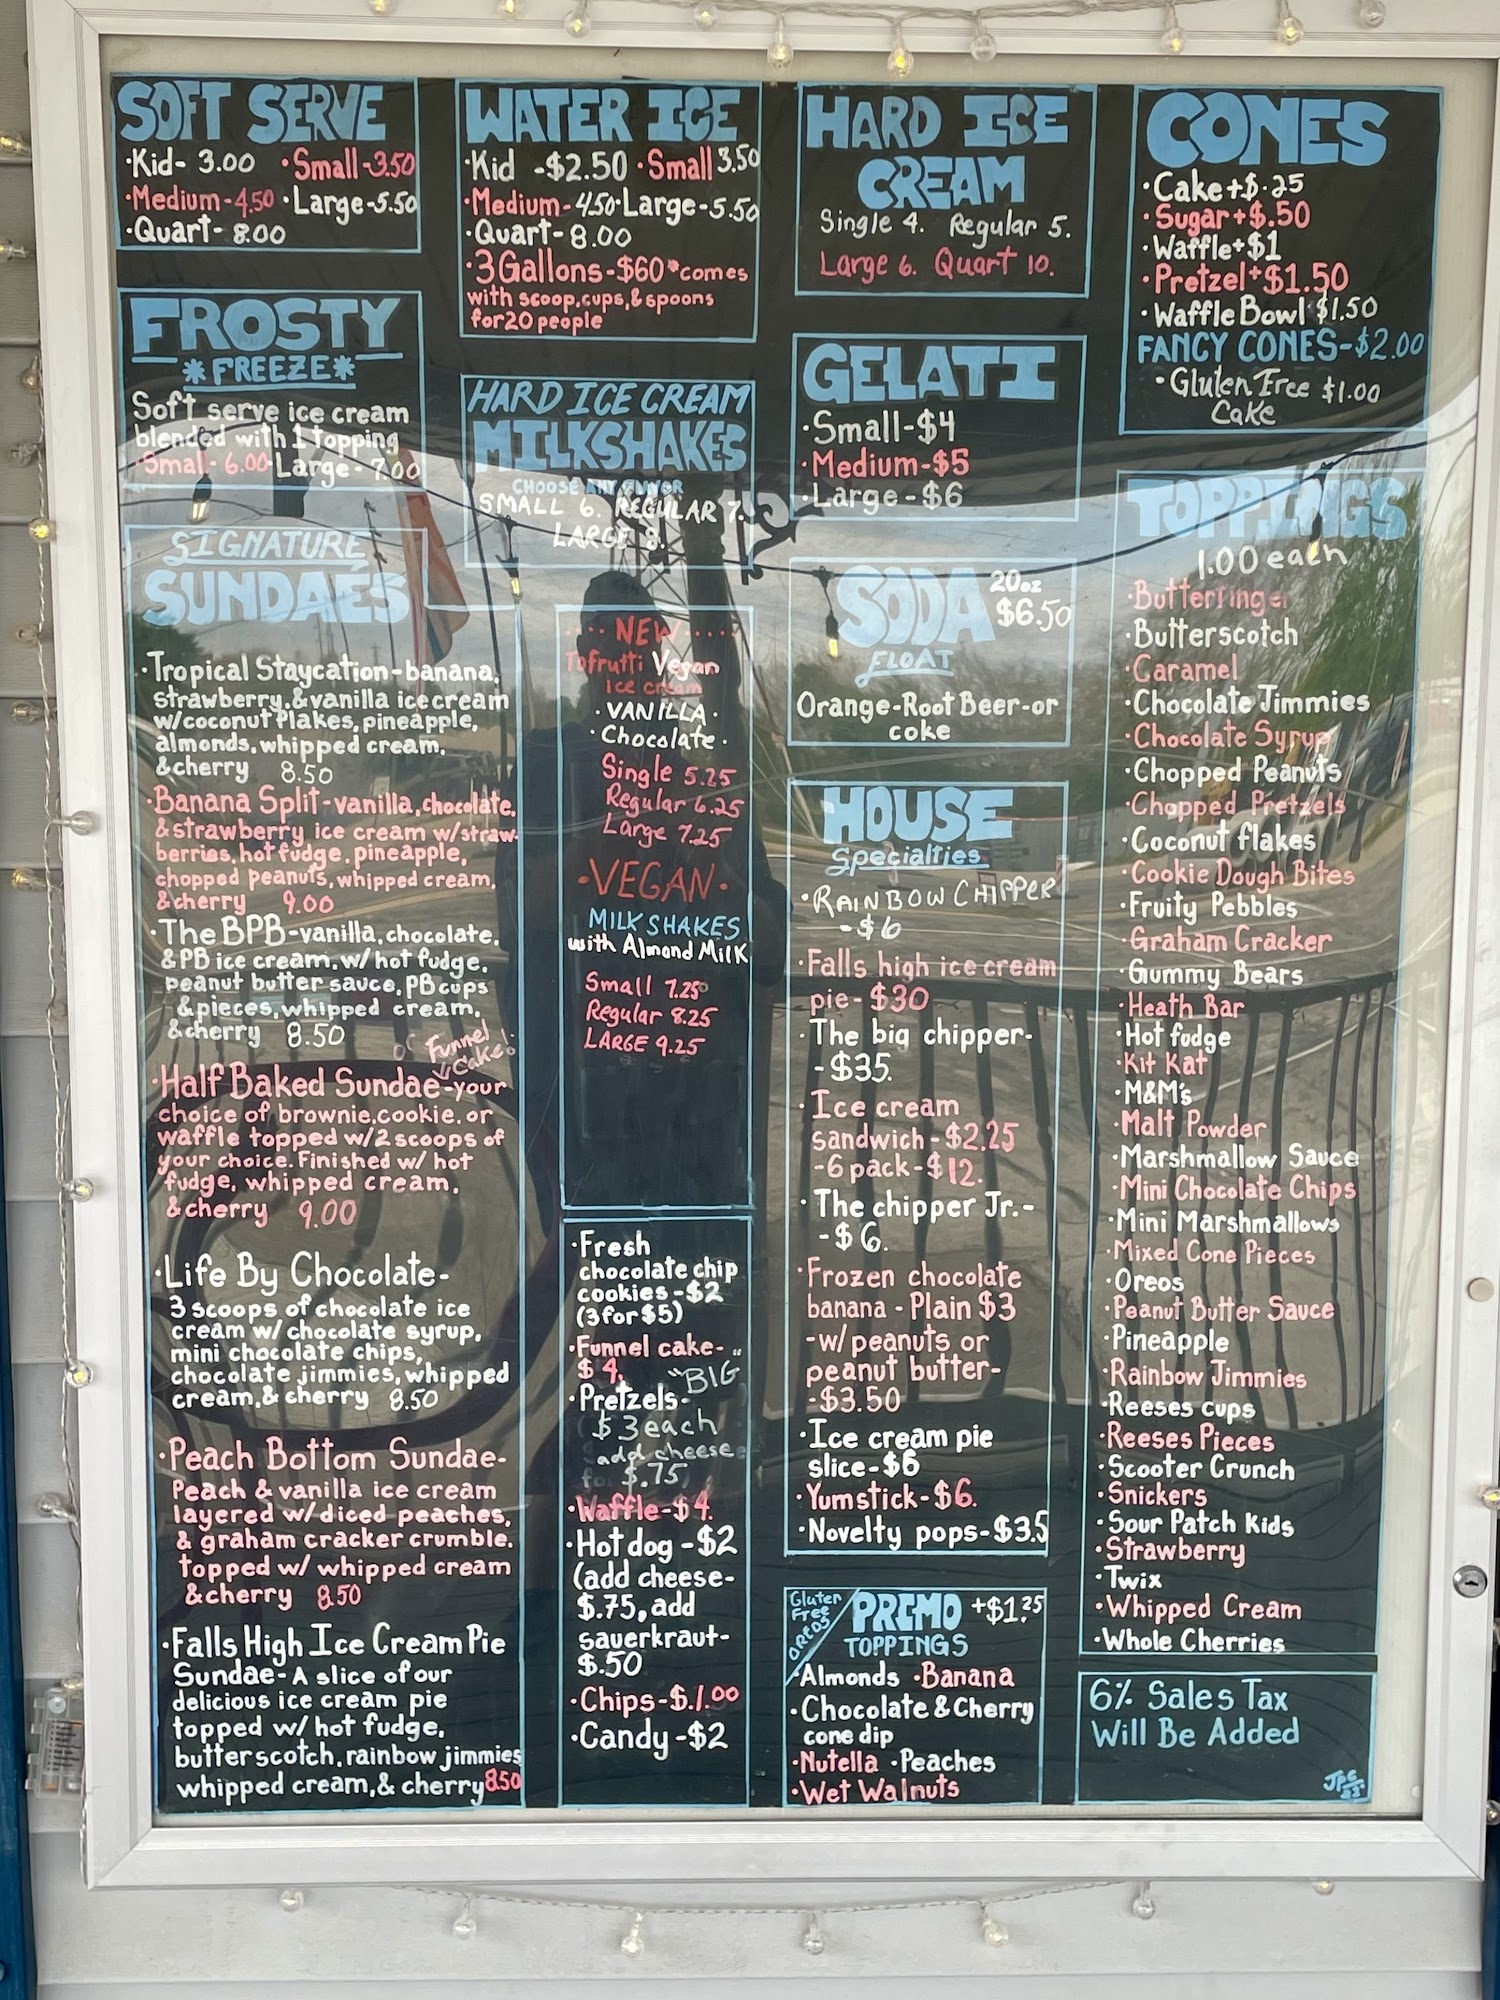 SOFT SERVE
·Kid- 3.00 ·Small-3.50
·Medium-4.50 ·Large-5.50
·Quart- 8.00
FROSTY
*FREEZE*
Soft serve ice cream
blended with 1 topping
·Small- 6.00·Large-7.00
SIGNATURE
SUNDAES
·Tropical Staycation-banana,
strawberry,&vanilla icecream
w/coconut flakes,pineapple,
almonds,whipped cream,
&cherry 8.50
·Banana Split-vanilla,chocolate,
&strawberry ice cream w/straw-
berries,hot fudge,pineapple,
chopped peanuts,whipped cream,
&cherry 9.00
·The BPB-vanilla,chocolate,
&PB ice cream,w/ hot fudge,
peanut butter sauce,PB cups
&pieces,whipped cream,
&cherry 8.50
or Funnel
Cake!
·Half Baked Sundae-your
choice of brownie,cookie,or
waffle topped w/2 scoops of
your choice. Finished w/ hot
fudge, whipped cream,
&cherry 9.00
·Life By Chocolate-
3 scoops of chocolate ice
cream w/ chocolate syrup,
mini chocolate chips,
chocolate jimmies,whipped
cream,& cherry 8.50
·Peach Bottom Sundae-
Peach & vanilla ice cream
layered w/diced peaches,
& graham cracker crumble.
topped w/ whipped cream
&cherry 8.50
·Falls High Ice Cream Pie
Sundae-A slice of our
delicious ice cream pie
topped w/ hot fudge,
butterscotch,rainbow jimmies
whipped cream,& cherry 8.50
WATER ICE
·Kid -$2.50 ·Small 3.50
·Medium-4.50·Large-5.50
·Quart-8.00
·3Gallons-$60*comes
with scoop,cups,&spoons
for20 people
HARD ICE CREAM
MILKSHAKES
CHOOSE ANY FLAVOR
SMALL 6. REGULAR 7.
LARGE 8.
.... NEW ....
Tofrutti Vegan
ice cream
·VANILLA·
·Chocolate·
Single 5.25
Regular 6.25
Large 7.25
·VEGAN·
MILKSHAKES
with Almond Milk
Small 7.25
Regular 8.25
LARGE 9.25
·Fresh
chocolate chip
cookies-$2
(3for$5)
·Funnel cake-
$4.
·Pretzels- "BIG"
$3each
add cheese
for $.75
·Waffle-$4.
·Hot dog-$2
(add cheese-
$.75,add
sauerkraut-
$.50
·Chips-$1.00
·Candy-$2
HARD ICE
CREAM
Single 4. Regular 5.
Large 6. Quart 10.
GELATI
·Small-$4
·Medium-$5
·Large-$6
SODA 20oz
$6.50
FLOAT
Orange-Root Beer-or
coke
HOUSE
Specialties
·RAINBOW CHIPPER
-$6
·Falls high ice cream
pie-$30
·The big chipper-
-$35.
·Ice cream
sandwich-$2.25
-6 pack-$12.
·The chipper Jr.-
-$6.
·Frozen chocolate
banana - Plain $3
-w/peanuts or
peanut butter-
-$3.50
·Ice cream pie
slice-$6
·Yumstick-$6.
·Novelty pops-$3.5
Gluten
Free
OREOS
PRIMO +$1.25
TOPPINGS
·Almonds ·Banana
·Chocolate & Cherry
cone dip
·Nutella ·Peaches
·Wet Walnuts
CONES
·Cake+$.25
·Sugar+$.50
·Waffle+$1
·Pretzel+$1.50
·Waffle Bowl $1.50
FANCY CONES-$2.00
·Gluten Free $1.00
Cake
TOPPINGS
1.00 each
·Butterfinger
·Butterscotch
·Caramel
·Chocolate Jimmies
·Chocolate Syrup
·Chopped Peanuts
·Chopped Pretzels
·Coconut flakes
·Cookie Dough Bites
·Fruity Pebbles
·Graham Cracker
·Gummy Bears
·Heath Bar
·Hot fudge
·Kit Kat
·M&M's
·Malt Powder
·Marshmallow Sauce
·Mini Chocolate Chips
·Mini Marshmallows
·Mixed Cone Pieces
·Oreos
·Peanut Butter Sauce
·Pineapple
·Rainbow Jimmies
·Reeses cups
·Reeses Pieces
·Scooter Crunch
·Snickers
·Sour Patch Kids
·Strawberry
·Twix
·Whipped Cream
·Whole Cherries
6% Sales Tax
Will Be Added